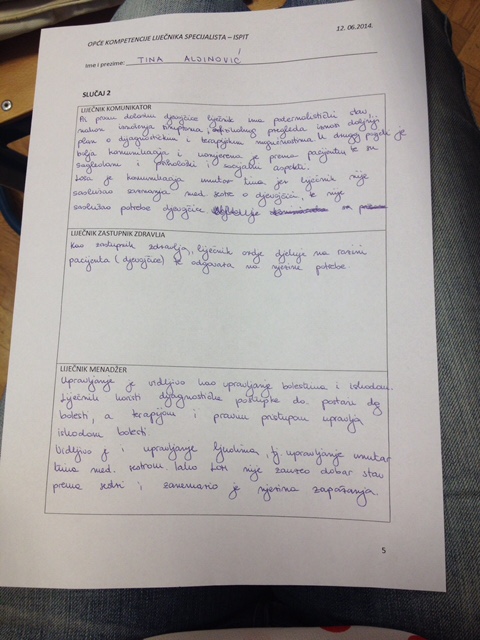 12. 06.2014.
OPĆE KOMPETENCIJE LIJEČNIKA SPECIJALISTA – ISPIT
Ime i prezime: TINA ALJINOVIĆ
SLUČAJ 2
LIJEČNIK KOMUNIKATOR
Pri prvom dolasku djevojčice liječnik ima paternalistički stav,
nakon iznošenja simptoma, fizikalnog pregleda iznosi daljnji
plan o dijagnostičkim i terapijskim mogućnostima. U drugoj posjeti je
bolja komunikacija i usmjerena je prema pacijentu te su
sagledani i psihološki i socijalni aspekti.
Loša je komunikacija unutar tima jer liječnik nije
saslušao saznanja med. sestre o djevojčici, te nije
saslušao potrebe djevojčice
LIJEČNIK ZASTUPNIK ZDRAVLJA
Kao zastupnik zdravlja, liječnik ovdje djeluje na razini
pacijenta (djevojčice) te odgovara na njezine potrebe
LIJEČNIK MENADŽER
Upravljanje je vidljivo kao upravljanje bolestima i ishodom.
Liječnik koristi dijagnostičke postupke da postavi dg
bolesti, a terapijom i pravim pristupom upravlja
ishodom bolesti
Vidljivo je i upravljanje ljudima, tj. upravljanje unutar
tima med. sestrom, iako loše nije zauzeo dobar stav
prema sestri i zanemario je njezina zapažanja.
5